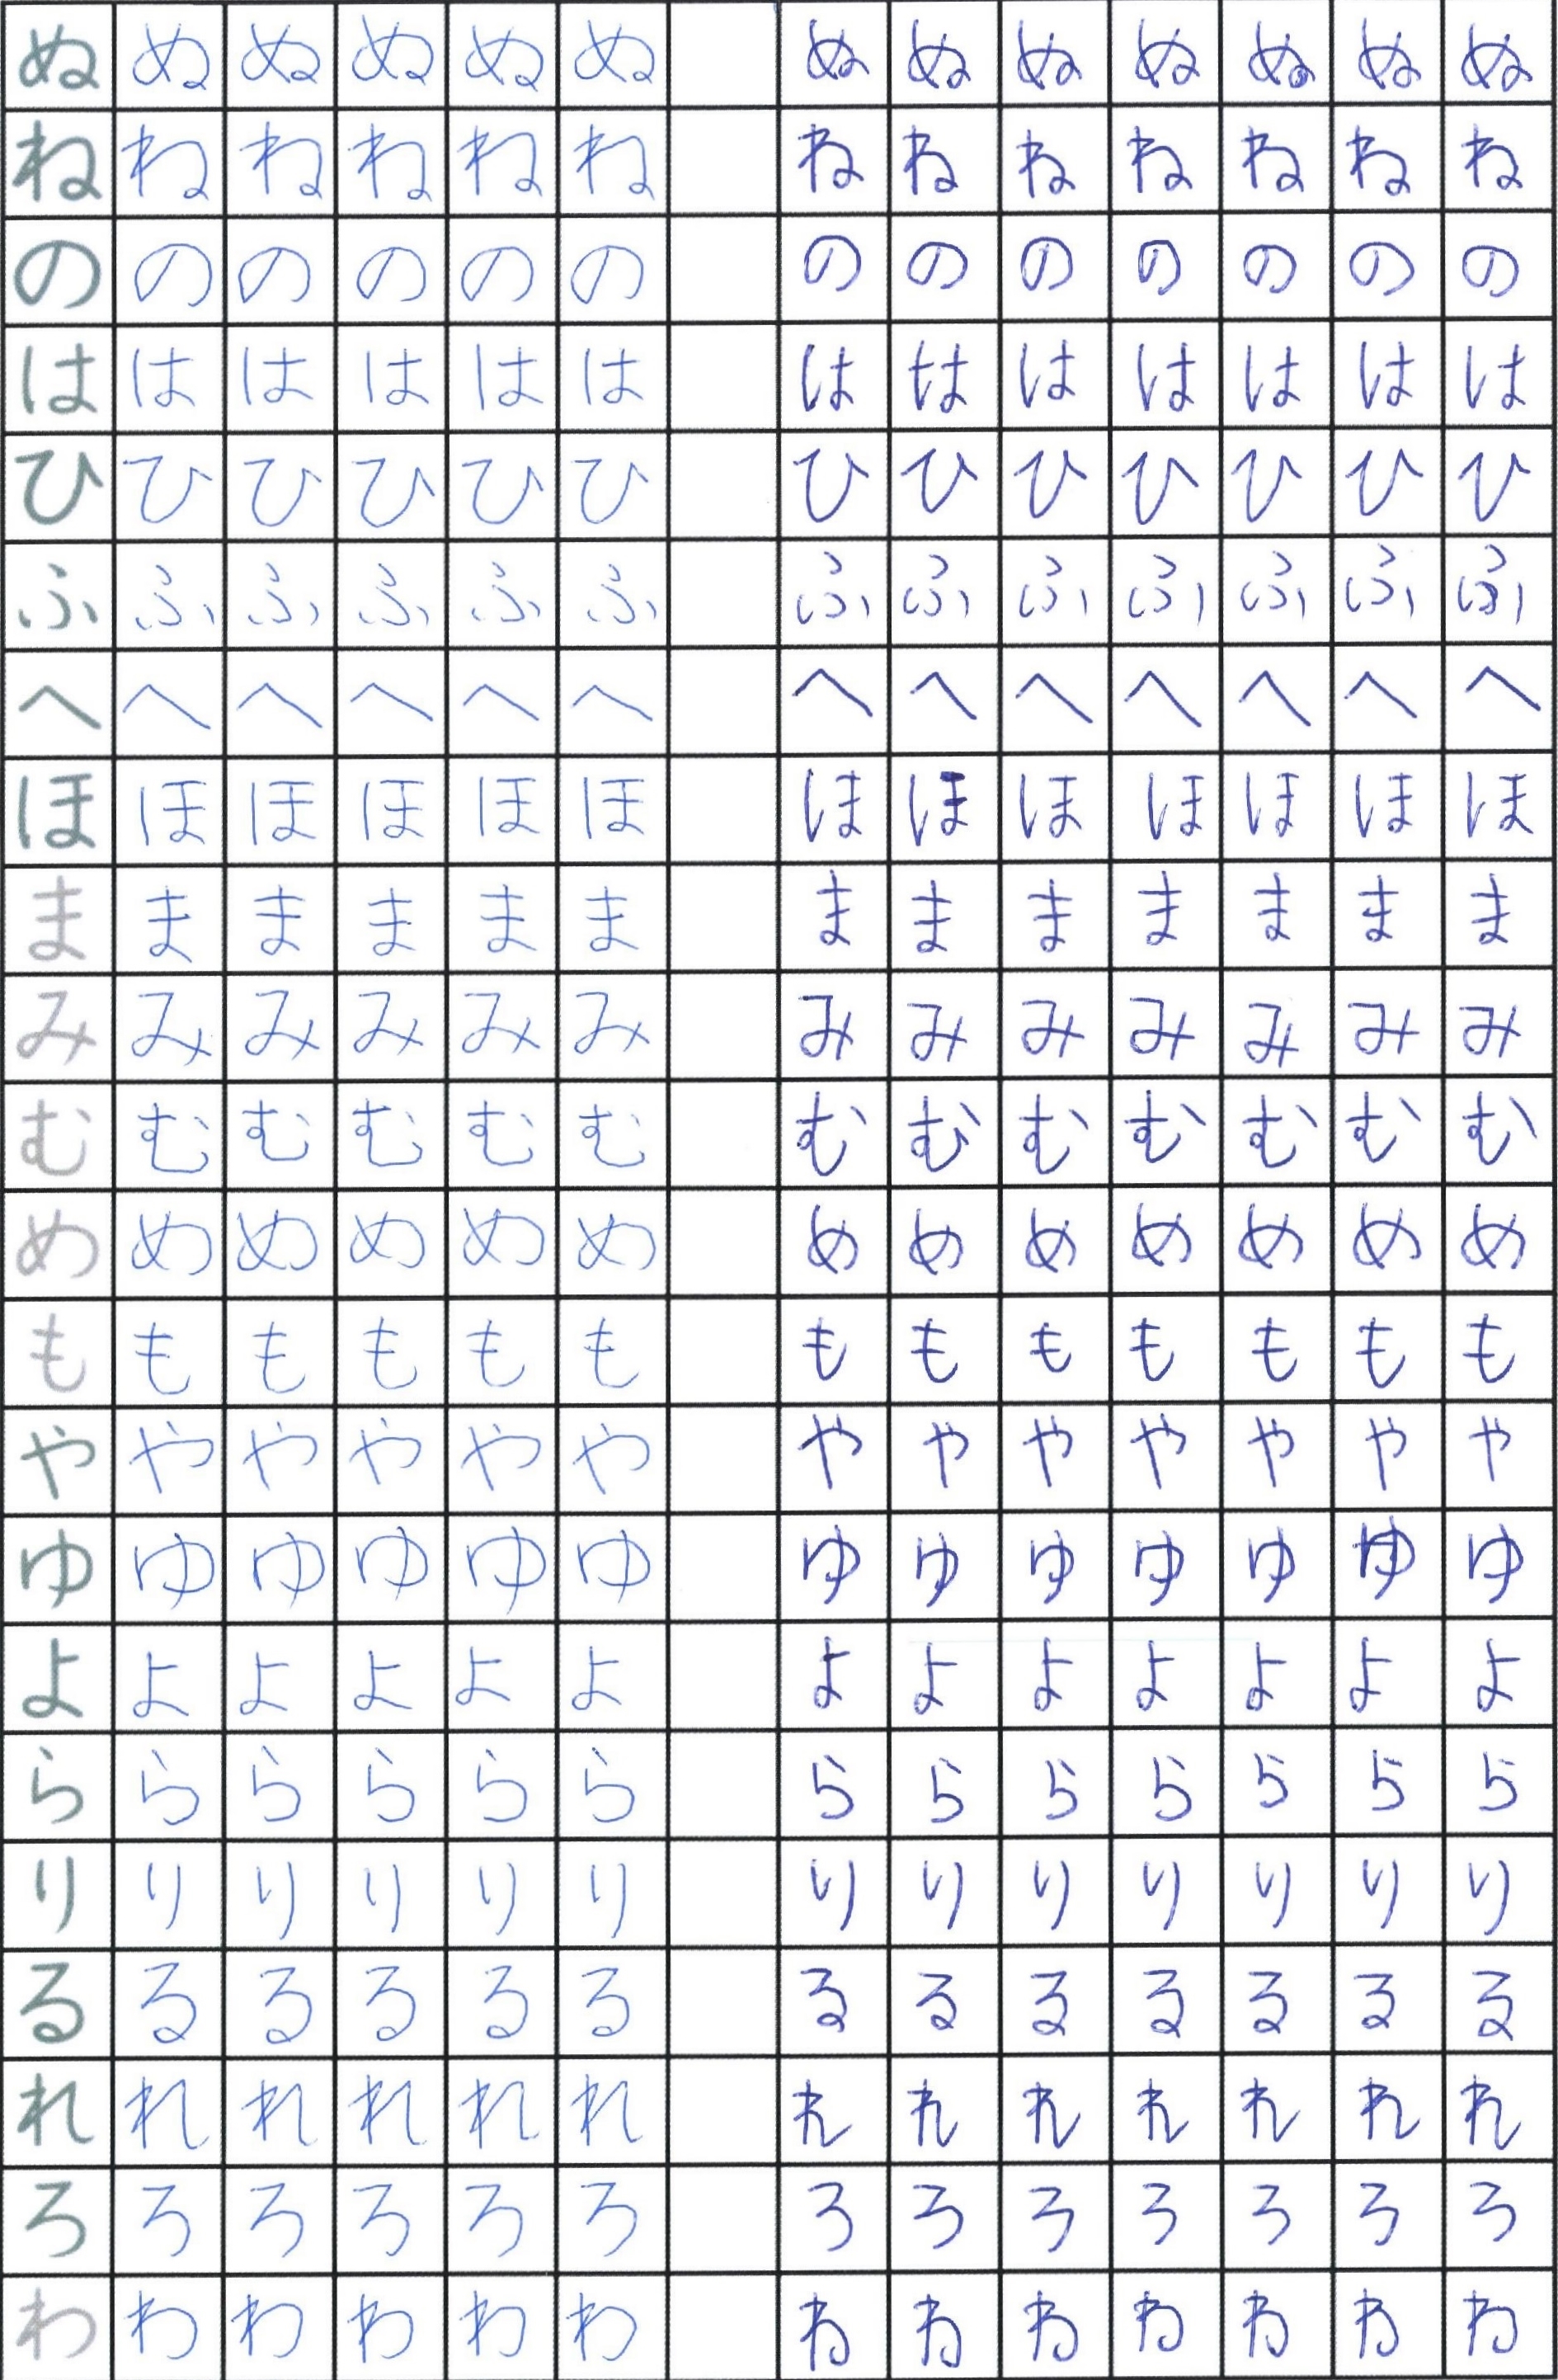 ぬ ぬ ぬ ぬ ぬ ぬ ぬ ぬ ぬ ぬ ぬ ぬ ぬ
ね ね ね ね ね ね ね ね ね ね ね ね ね
の の の の の の の の の の の の の
は は は は は は は は は は は は は
ひ ひ ひ ひ ひ ひ ひ ひ ひ ひ ひ ひ ひ
ふ ふ ふ ふ ふ ふ ふ ふ ふ ふ ふ ふ ふ
へ へ へ へ へ へ へ へ へ へ へ へ へ
ほ ほ ほ ほ ほ ほ ほ ほ ほ ほ ほ ほ ほ
ま ま ま ま ま ま ま ま ま ま ま ま ま
み み み み み み み み み み み み み
む む む む む む む む む む む む む
め め め め め め め め め め め め め
も も も も も も も も も も も も も
や や や や や や や や や や や や や
ゆ ゆ ゆ ゆ ゆ ゆ ゆ ゆ ゆ ゆ ゆ ゆ ゆ
よ よ よ よ よ よ よ よ よ よ よ よ よ
ら ら ら ら ら ら ら ら ら ら ら ら ら
り り り り り り り り り り り り り
る る る る る る る る る る る る る
れ れ れ れ れ れ れ れ れ れ れ れ れ
ろ ろ ろ ろ ろ ろ ろ ろ ろ ろ ろ ろ ろ
わ わ わ わ わ わ わ わ わ わ わ わ わ